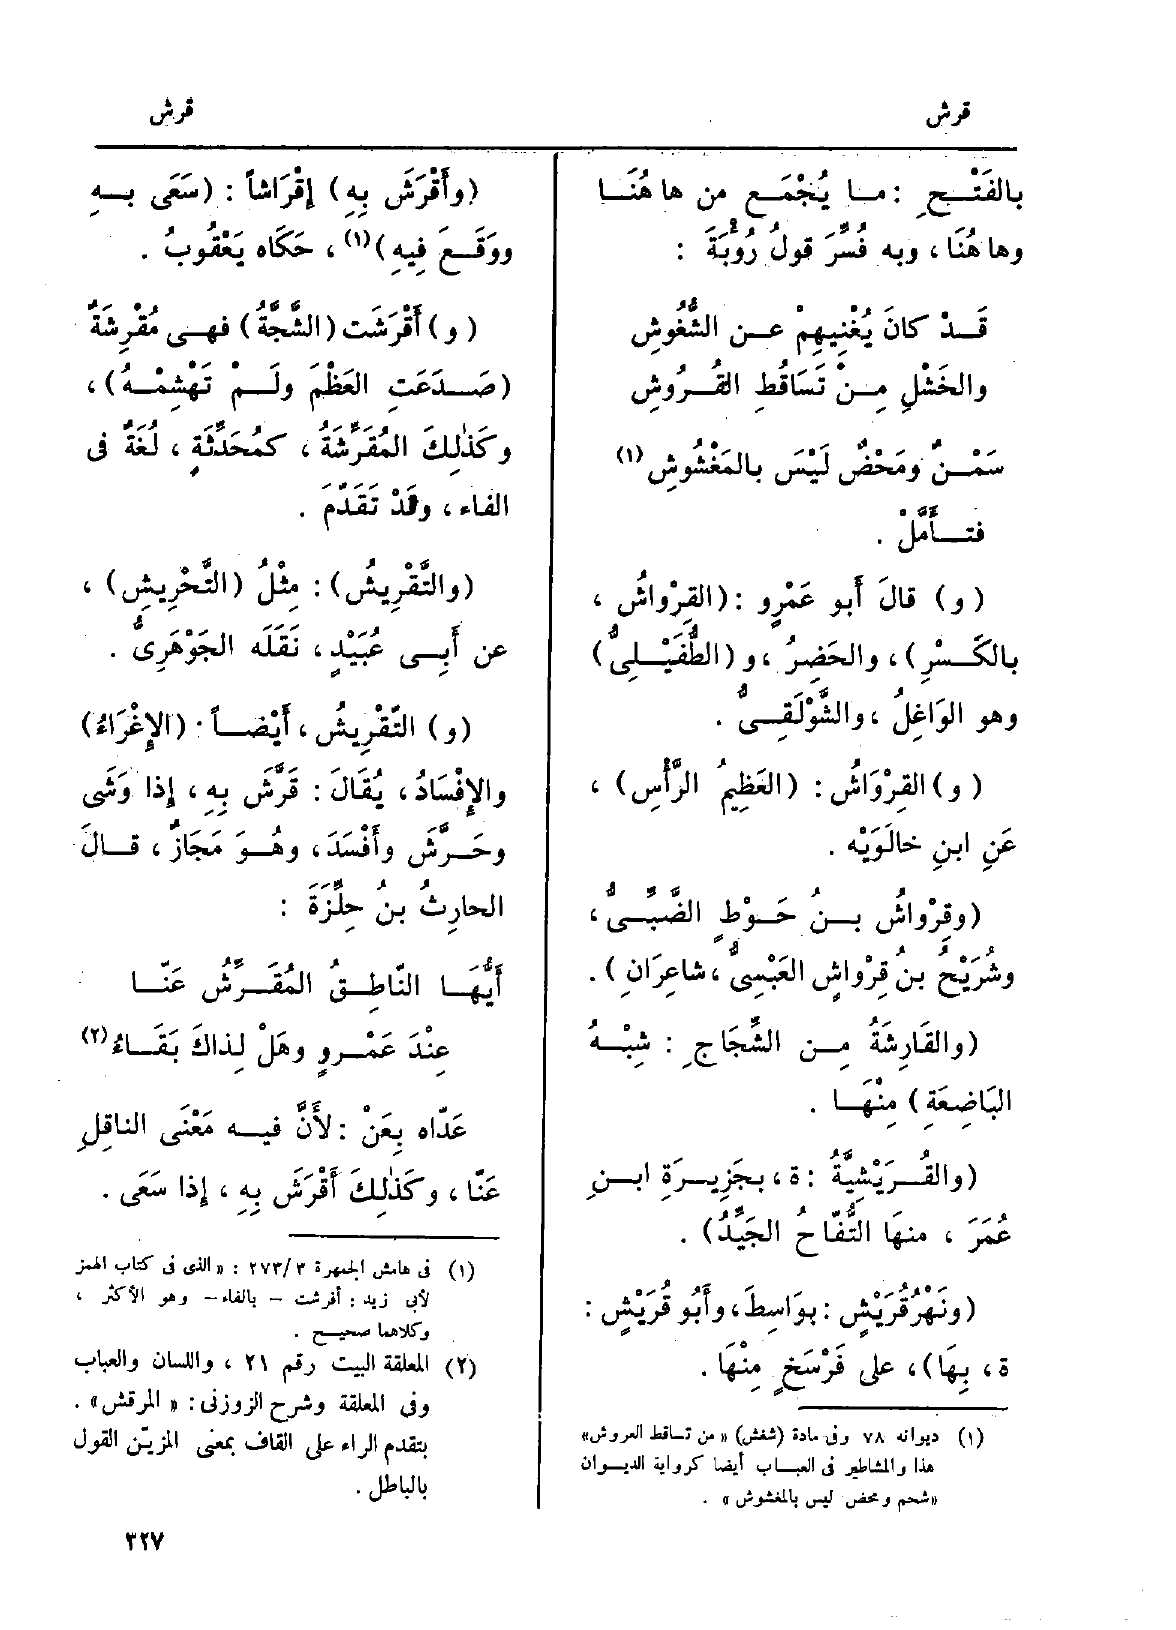 قرش
قرش
بالفَتْـحِ : مـا يُجْمَـع من ها هُنَـا
وها هُنَا ، وبه فُسِّرَ قولُ رُؤْبَةَ :
قَـدْ كانَ يُغْنِيهِمْ عـن الشُّغُوشِ
والخَشْلِ مِـنْ تَسَاقُطِ القُـرُوشِ
سَمْـنٌ ومَحْضٌ لَيْسَ بالمَغْشُوشِ (١)
فتـأَمَّلْ .
( و ) قالَ أَبو عَمْرٍو : (القِرْواشُ ،
بالكَـسْرِ) ، والحَضِرُ ، و (الطُّفَيْـلِىُّ)
وهو الوَاغِلُ ، والشَّوْلَقِـىُّ .
( و ) القِرْوَاشُ : (العَظِيمُ الرَّأْسِ) ،
عَنِ ابنِ خالَوَيْه .
(وقِرْواشُ بـنُ حَـوْطٍ الضَّبِّـىُّ ،
وشُرَيْحُ بنُ قِرْواشٍ العَبْسِىُّ ، شاعِرَانِ ) .
(والقَارِشَةُ مِـن الشِّجَاجِ : شِبْـهُ
البَاضِعَةِ ) مِنْهَـا .
(والقُـرَيْشِيَّةُ : ة ، بجَزِيـرَةِ ابـنِ
عُمَرَ ، منهَا التُّفّاحُ الجَيِّدُ) .
(ونَهْرُ قُرَيْشٍ : بوَاسِطَ ، وأَبُو قُرَيْشٍ :
ة ، بِهَا) ، على فَرْسَخٍ مِنْهَا .
(١) ديوانه ٧٨ وفى مادة (شغش) « من تساقط العروش »
هذا والمشاطير فى العباب أيضا كرواية الديوان
« شحم ومحض ليس بالمغشوش » .
(وأَقْرَشَ بِهِ ) إِقْرَاشاً : (سَعَى بـهِ
ووَقَـعَ فِيهِ )(١) ، حَكَاه يَعْقُوبُ .
( و ) أَقْرَشَت (الشَّجَّةُ ) فهـى مُقْرِشَةٌ
(صَـدَعَتِ العَظْمَ ولَـمْ تَهْشِمْـهُ ) ،
وكَذٰلِكَ المُقَرِّشَةُ ، كمُحَدِّثَةٍ ، لُغَةٌ فى
الفاء ، وقَدْ تَقَدَّمَ .
(والتَّقْرِيشُ) : مِثْلُ (التَّحْرِيشِ) ،
عن أَبِـى عُبَيْدٍ ، نَقَلَه الجَوْهَرِىُّ .
( و ) التَّقْرِيشُ ، أَيْضـاً : (الإِغْرَاءُ)
والإِفْسَادُ ، يُقَالَ : قَرَّشَ بِهِ ، إِذا وَشَى
وحَـرَّشَ وأَفْسَدَ ، وهُـوَ مَجَازٌ ، قـالَ
الحارِثُ بنُ حِلِّزَةَ :
أَيُّهَـا النّاطِـقُ المُقَـرِّشُ عَنّـا
عِنْدَ عَمْـرٍو وهَلْ لِذاكَ بَقَـاءُ (٢)
عَدّاه بِعَنْ : لأَنَّ فيـه مَعْنَى الناقِلِ
عَنّا ، وكَذٰلِكَ أَقْرَشَ بِهِ ، إِذا سَعَى .
(١) فى هامش الجمهرة ٣/ ٢٧٣ : « الذى فى كتاب الهمز
لأبى زيد : أفرشت – بالفاء – وهو الأكثر ،
وكلاهما صحيح .
(٢) المعلقة البيت رقم ٢١ ، واللسان والعباب
وفى المعلقة وشرح الزوزنى : « المرقش » .
بتقدم الراء على القاف بمعنى المزين القول
بالباطل .
٣٢٧